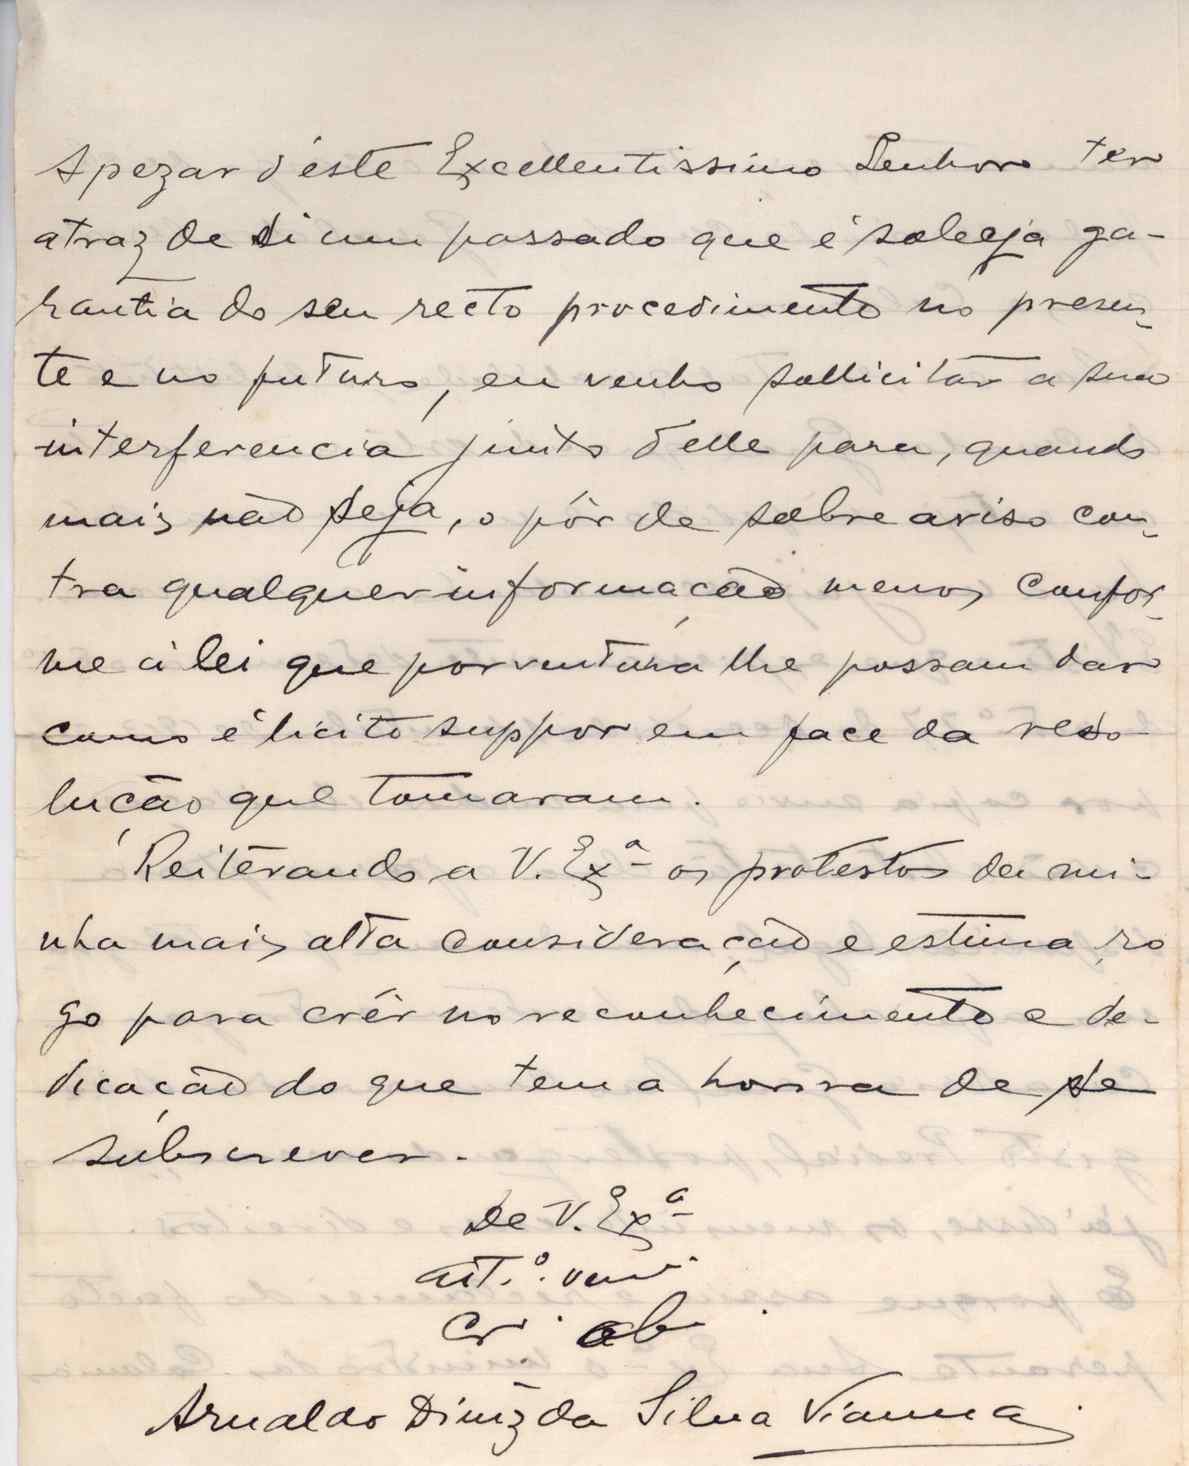 Apezar d'este Excellentissimo Senhor ter
atraz de si um passado que é sobeja ga-
rantia do seu recto procedimento no presen-
te e no futuro, eu venho sollicitar a sua
interferencia junto d'elle para, quando
mais não seja, o pôr de sobreaviso con-
tra qualquer informação menos confor-
me á lei que porventura lhe possam dar
como é licito suppor em face da reso-
lução que tomaram.
Reiterando a V. Exª os protestos da mi-
nha mais alta consideração e estima, ro
go para crêr no reconhecimento e de-
dicação do que tem a honra de se
subscrever.
De V. Exª
att.º ven.
Cr. ob.
Arnaldo Diniz da Silva Vianna